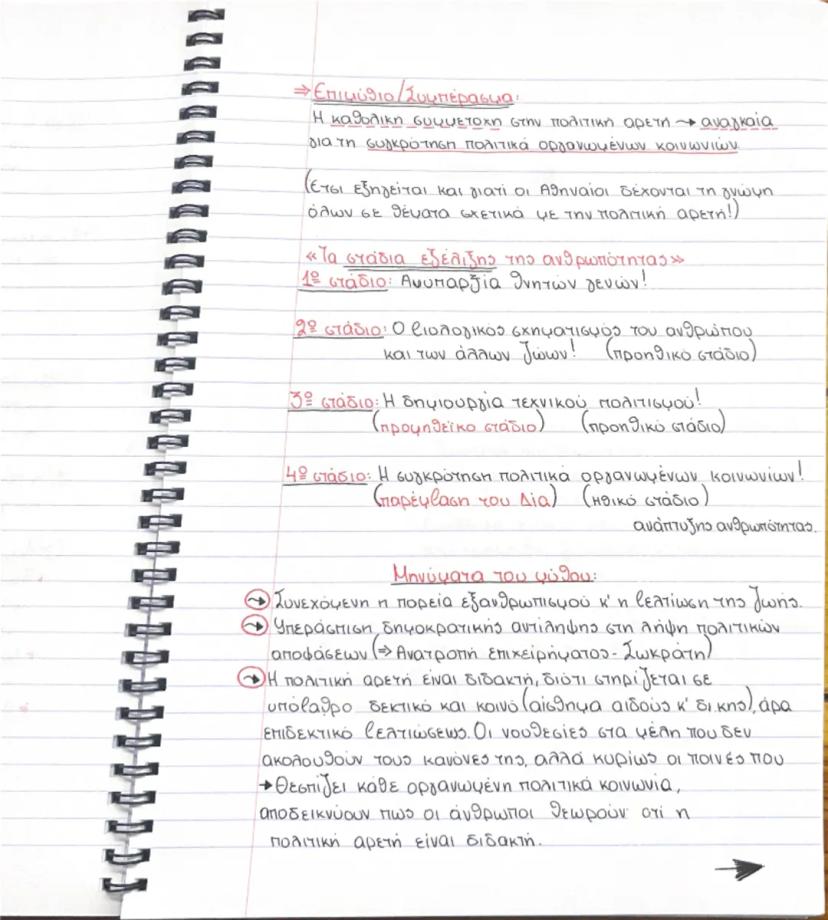 ⇒ Επιμύθιο/Συμπέρασμα:
Η καθολική συμμετοχη στην πολιτική αρετή → αναγκαία
για τη συγκρότηση πολιτικά οργανωμένων κοινωνιών
(Έτσι εξηγείται και γιατί οι Αθηναίοι δέχονται τη γνώμη
όλων σε θέματα σχετικά με την πολιτική αρετή!)
«Τα στάδια εξέλιξης της ανθρωπότητας»
1º στάδιο: Ανυπαρξία θνητών γενών!
2º στάδιο: Ο βιολογικός σχηματισμός του ανθρώπου
και των άλλων ζώων! (προηθικό στάδιο)
3º στάδιο: Η δημιουργία τεχνικού πολιτισμού!
(προμηθεϊκο στάδιο) (προηθικό στάδιο)
4º στάδιο: Η συγκρότηση πολιτικά οργανωμένων κοινωνίων!
(παρέμβαση του Δία) (ηθικό στάδιο)
ανάπτυξης ανθρωπότητας.
Μηνύματα του μύθου:
→ Συνεχόμενη η πορεία εξανθρωπισμού κ' η βελτίωση της ζωής.
→ Υπεράσπιση δημοκρατικής αντίληψης στη λήψη πολιτικών
αποφάσεων (⇒ Ανατροπή επιχειρήματος - Σωκράτη)
→ Η πολιτική αρετή είναι διδακτή, διότι στηρίζεται σε
υπόβαθρο δεκτικό και κοινό (αίσθημα αιδούς κ' δίκης), άρα
επιδεκτικό βελτιώσεως. Οι νουθεσίες στα μέλη που δεν
ακολουθούν τους κανόνες της, αλλά κυρίως οι ποινές που
→ θεσπίζει κάθε οργανωμένη πολιτικά κοινωνία,
αποδεικνύουν πως οι άνθρωποι θεωρούν οτί η
πολιτική αρετή είναι διδακτή.
→